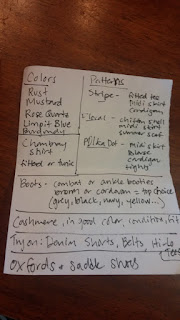 Colors
Rust
Mustard
Rose Quartz
Limpit Blue
Burgundy
Chambray
shirt
fitted or tunic
Patterns
Stripe - fitted tee
midi skirt
cardigan
Floral - chiffon shell
midi skirt
summer scarf
Polka Dot - midi skirt
blouse
cardigan
tights
Boots - combat or ankle booties
brown or cordovan = top choice
(grey, black, navy, yellow...)
Cashmere, in good color, condition, fit
Try on: Denim Shorts, Belts, Hi-Lo
Tees
Oxfords & saddle shoes